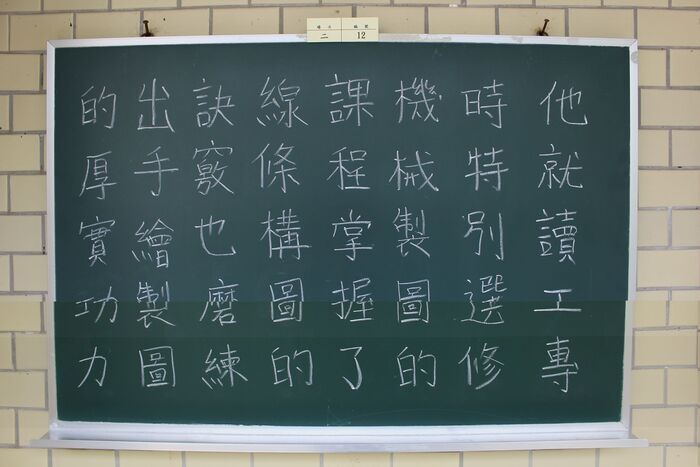 場次 編號
二 12
他就讀工專
時特別選修
機械製圖的
課程掌握了
線條構圖的
訣竅也磨練
出手繪製圖
的厚實功力